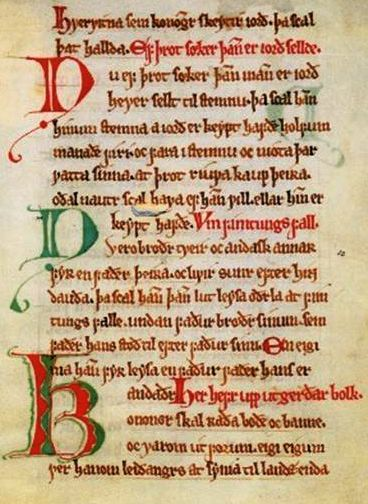 hvervitna sem konogr skeytir iord. þa scal
þat hallda. Ef þrot søker þan er iord sellde.
Nu ef þrot søker þan man er iord
hever sellt til stemnu. þa scal han
hinum stemna a iord er keypt hafde holfum
manade firi. oc fara i stemnu oc niota þar
vatta sinna. at þrot ruifa kaup þeira.
odal nautr scal hava ef han vill. ellar hin er
keypt hafde. Um sunitungs fall.
Nu ero brodr tveir oc andask annar
fyr en fader þeira. oc livir sunr efter hin
dauda. þa scal han þan lut leysa odrla at suni
tungs falle. undan fadur brodr sinum. sem
fader hans stod til efter fadur sinn. En eigi
ma han fyr leysa en fadur fader hans er
andadr Her hefr up utgerdar bolk.
Kononor skal rada bode oc banne.
oc varom utforum. eigi eigum
ver hanom leidangrs at synia til landsenda